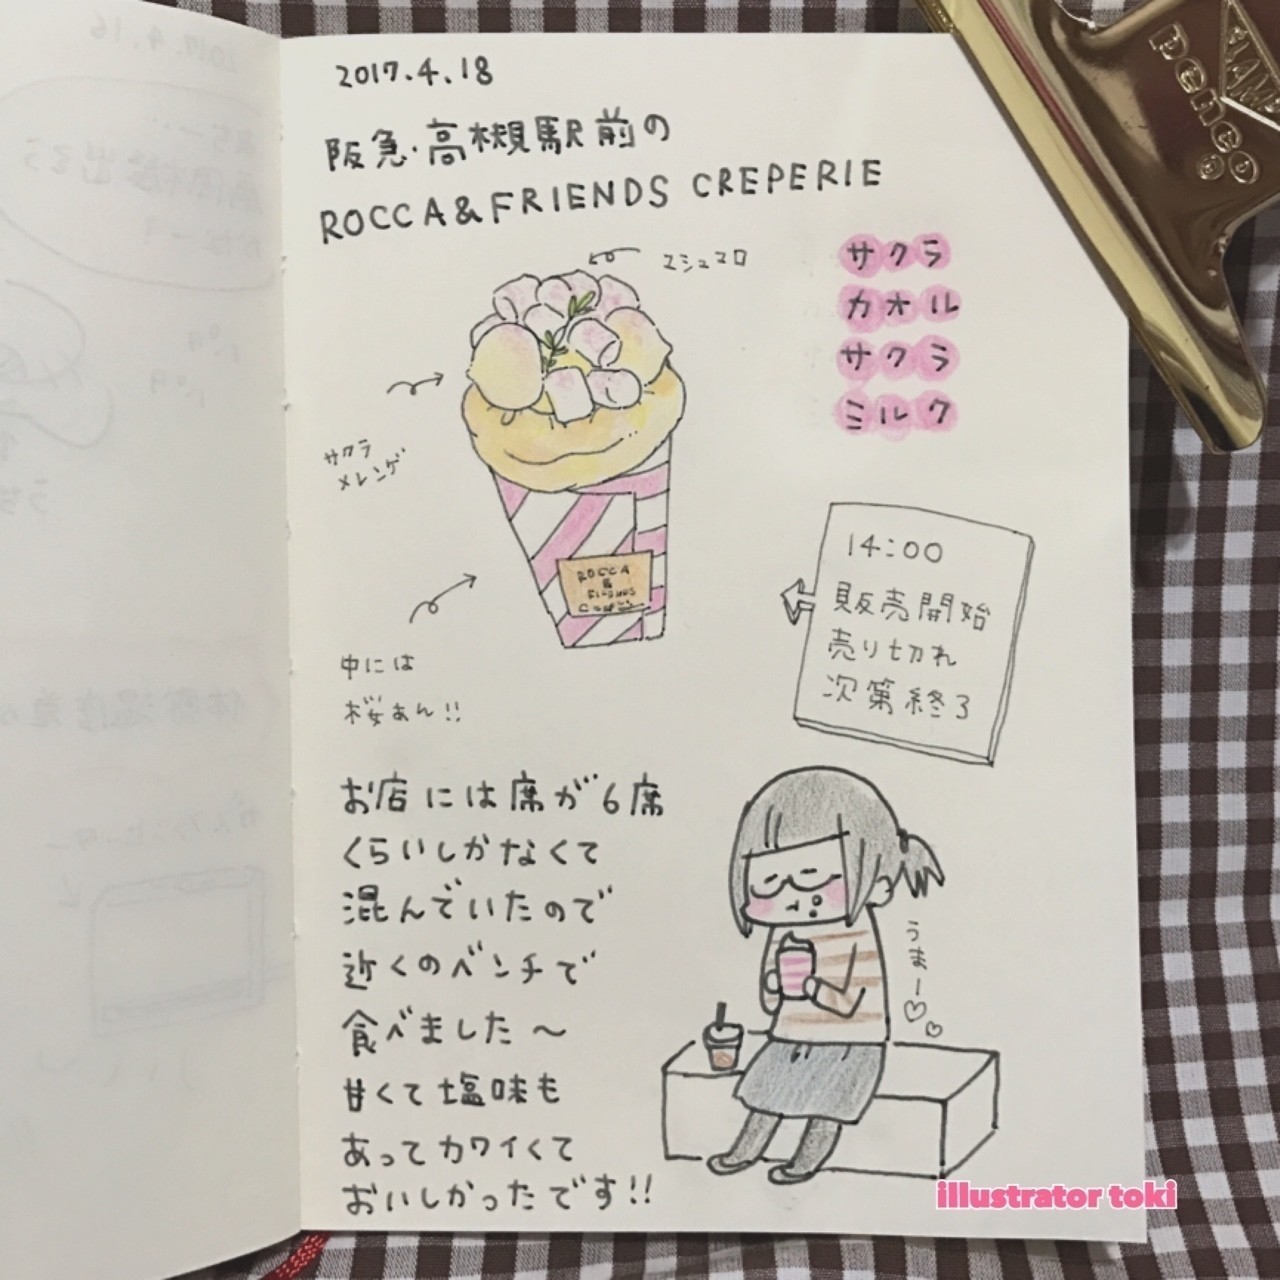 2017.4.18
阪急・高槻駅前の
ROCCA&FRIENDS CREPERIE
マシュマロ
サクラ
カオル
サクラ
ミルク
サクラ
メレンゲ
ROCCA
&
FRIENDS
中には
桜あん!!
14:00
販売開始
売り切れ
次第終了
お店には席が6席
くらいしかなくて
混んでいたので
近くのベンチで
食べました〜
甘くて塩味も
あってカワイくて
おいしかったです!!
うまー♡♡
illustrator toki
penco®
2017.4.16